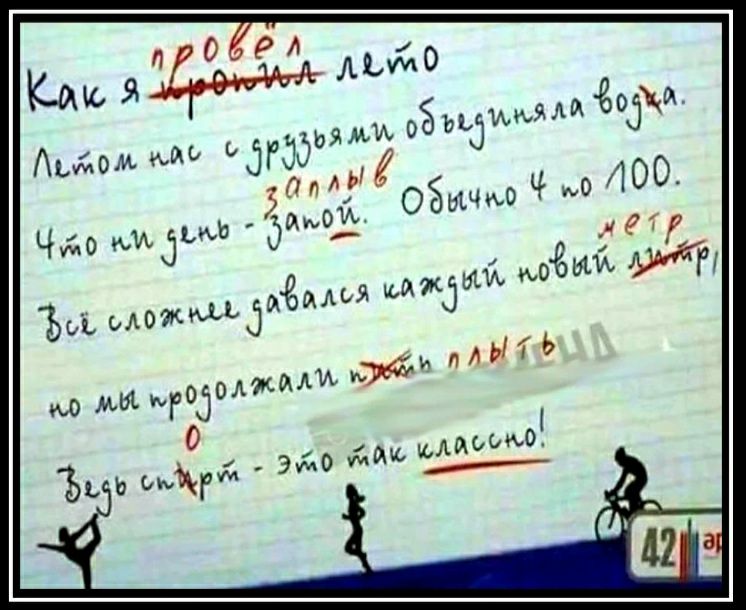 провёл
Как я пропил лето
Летом нас с друзьями объединяла водка.
заплыв
Что ни день - запой. Обычно 4 по 100.
метр
Всё сложнее давался каждый новый литр,
но мы продолжали пить плыть
О
Ведь спирт - это так классно!
42 ар